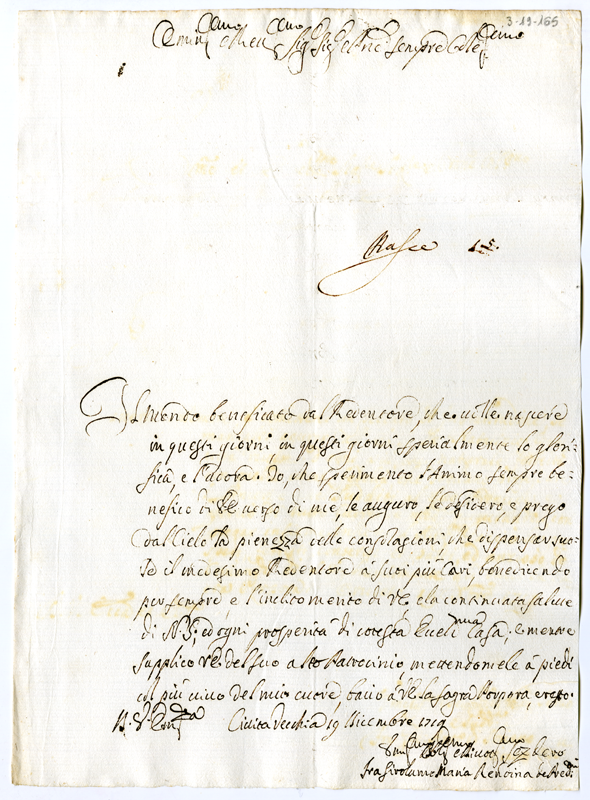 3-19-165
Sig.
sempre
Il mondo beneficato dal Redentore, che volle nascere
in questi giorni, in questi giorni specialmente lo glori=
fica, e l'adora. Io, che sperimento l'Animo sempre be=
nefico di VE verso di me, le auguro, le desidero, e prego
dal Cielo la pienezza delle consolazioni, che dispensar suo=
le il medesimo Redentore a' suoi più Cari, benedicendo
per sempre, e l'inclito merito di VE, e la continuata salute
di N. S., ed ogni prosperità di cotesta Eccell.ma Casa. E mentre
supplico VE del suo alto Patrocinio, mettendomele a' piedi
col più vivo del mio cuore, bacio a VE la sagra Porpora, e resto.
Civita Vecchia 19 Dicembre 1719
fra Girolamo Maria